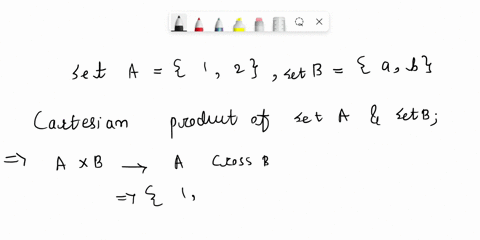 set A = { 1, 2 } , set B = { a, b }
Cartesian product of set A & set B;
=> A × B → A cross B
=> { 1,